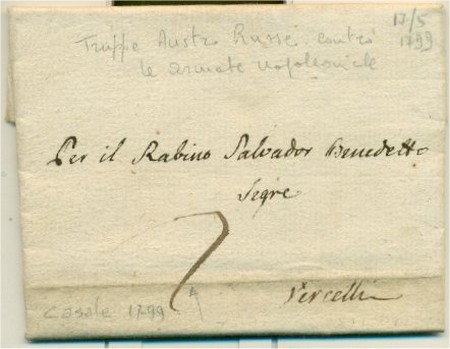 13/5
1799
Truppe Austro Russe contro
le armate napoleoniche
Per il Rabino Salvador Benedetto
Segre
7
Vercelli
Casale 1799